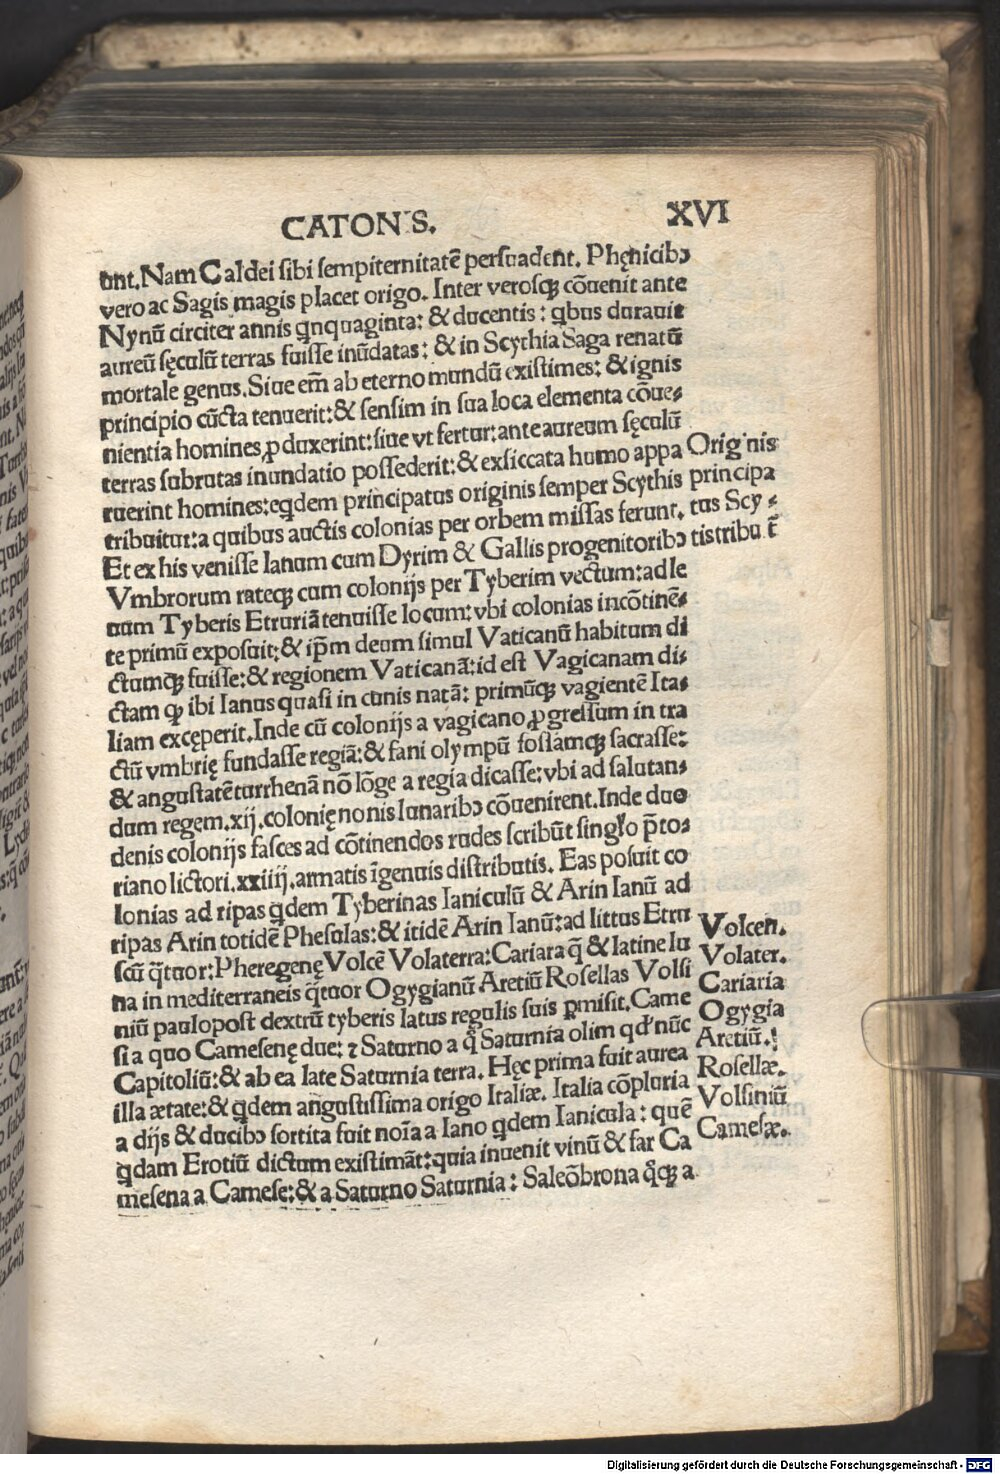 CATONIS.
XVI
unt. Nam Caldei sibi sempiternitatē persuadent. Phęnicibꝰ
vero ac Sagis magis placet origo. Inter verosqꝫ cōuenit ante
Nynū circiter annis q̄nquaginta: & ducentis: qbus durauit
aureū sęculū terras fuisse inūdatas: & in Scythia Saga renatū
mortale genus. Siue em̄ ab eterno mundū existimes: & ignis
principio cūcta tenuerit: & sensim in sua loca elementa cōue-
nientia homines ꝓduxerint: siue vt fertur: ante aureum sęculū
terras subrutas inundatio possederit: & exsiccata humo appa
ruerint homines: eqdem principatus originis semper Scythis
tribuitur: a quibus auctis colonias per orbem missas ferunt.
Et ex his venisse Ianum cum Dyrim & Gallis progenitoribꝰ
Vmbrorum rateqꝫ cum colonijs per Tyberim vectum: ad le
uum Tyberis Etruriā tenuisse locum: vbi colonias incōtinē-
te primū exposuit: & ip̄m deum simul Vaticanū habitum di
ctumqꝫ fuisse: & regionem Vaticanā: id est Vagicanam di-
ctam ꝙ ibi Ianus quasi in cunis natā: primūqꝫ vagientē Ita-
liam excęperit. Inde cū colonijs a vagicano ꝓgressum in tra
ctū vmbrię fundasse regiā: & fani olympū fossamqꝫ sacrasse:
& angustatē turrhenā nō lōge a regia dicasse: vbi ad salutan-
dum regem .xij. colonię nonis lunaribꝰ cōuenirent. Inde duo
denis colonijs fasces ad cōtinendos rudes scribūt singło p̄to-
riano lictori .xxiiij. armatis īgenuis distributis. Eas posuit co
lonias ad ripas qdem Tyberinas Ianiculū & Arin Ianū ad
ripas Arin totidē Phesulas: & itidē Arin Ianū: ad littus Etru
scū q̄tuor: Pheregenę Volcē Volaterra: Cariara q̄ & latine lu
na in mediterraneis q̄tuor Ogygianū Aretiū Rosellas Volsi
niū paulopost dextrū tyberis latus regulis suis ꝑmisit. Came
si a quo Camesenę due: ⁊ Saturno a q̊ Saturnia olim qđ nūc
Capitoliū: & ab ea late Saturnia terra. Hęc prima fuit aurea
illa ætate: & qdem angustissima origo Italiæ. Italia cōpluria
a dijs & ducibꝰ sortita fuit noīa a Iano qdem Ianicula: quē
qdam Erotiū dictum existimāt: quia inuenit vinū & far Ca
mesena a Camese: & a Saturno Saturnia: Saleōbrona q̊qꝫ a
Originis
principa
tus Scy-
tis tribut̄
Volcen.
Volater.
Cariaria
Ogygia
Aretiū.
Rosellæ.
Volsiniū
Camesæ.
Digitalisierung gefördert durch die Deutsche Forschungsgemeinschaft - DFG